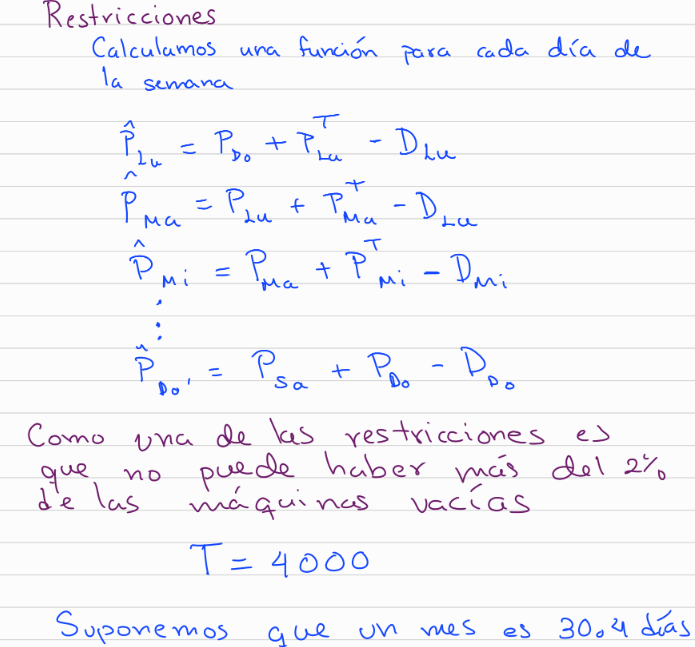 Restricciones
Calculamos una función para cada día de
la semana
P̂_Lu = P_Do + P^T_Lu - D_Lu
P̂_Ma = P_Lu + P^T_Ma - D_Lu
P̂_Mi = P_Ma + P^T_Mi - D_Mi
⋮
P̂_Do' = P_Sa + P_Do - D_Do
Como una de las restricciones es
que no puede haber más del 2%
de las máquinas vacías
T = 4000
Suponemos que un mes es 30.4 días